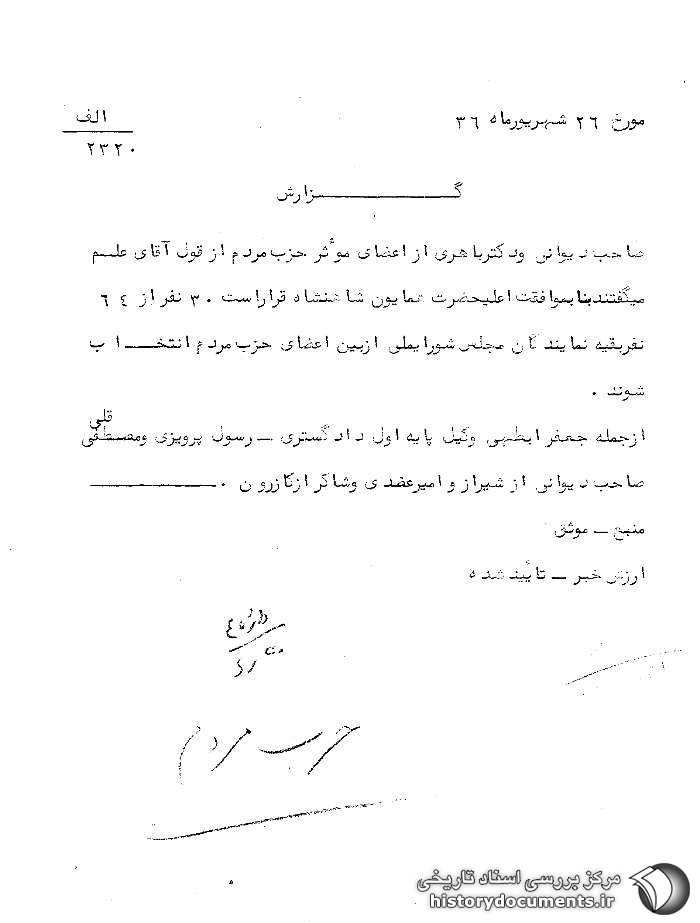 مورخ ٢٦ شهریورماه ٣٦
الف
٢٣٢٠
گـــزارش
صاحب دیوانی ودکترباهری از اعضای موٴثر حزب مردم از قول آقای علـم
میگفتند بنابموافقت اعلیحضرت همایون شاهنشاه قراراست ٣٠ نفر از ٦٤
نفربقیه نمایندگان مجلس شورایملی ازبین اعضای حزب مردم انتخـــاب
شوند .
ازجمله جعفر ابطهی وکیل پایه اول دادگستری ــ رسول پرویزی ومصطفی قلی
صاحب دیوانی از شیراز و امیرعضدی وشاکر ازکازرون .
منبع ــ موثق
ارزش خبر ــ تأیید شده
حزب مردم
مرکز بررسی اسناد تاریخی
historydocuments.ir